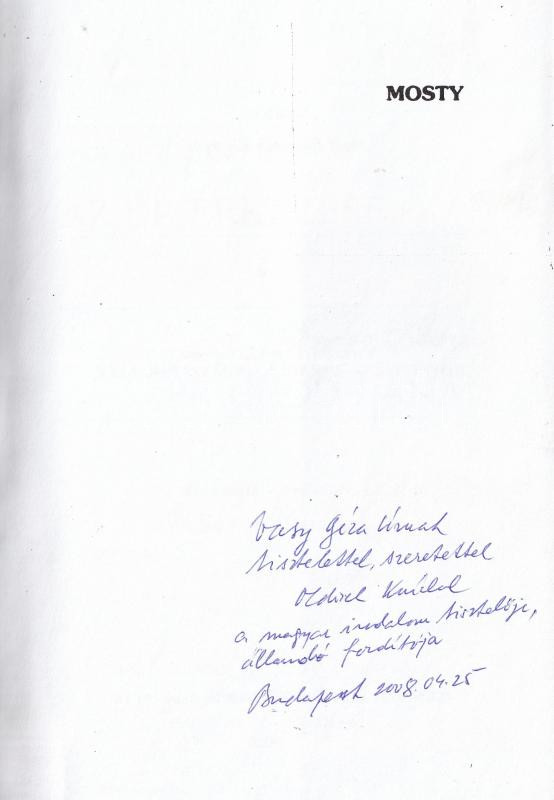 MOSTY
Vasy Géza Úrnak
tisztelettel, szeretettel
Oldrich Knichal
a magyar irodalom tisztelője,
állandó fordítója
Budapest 2008.04.25